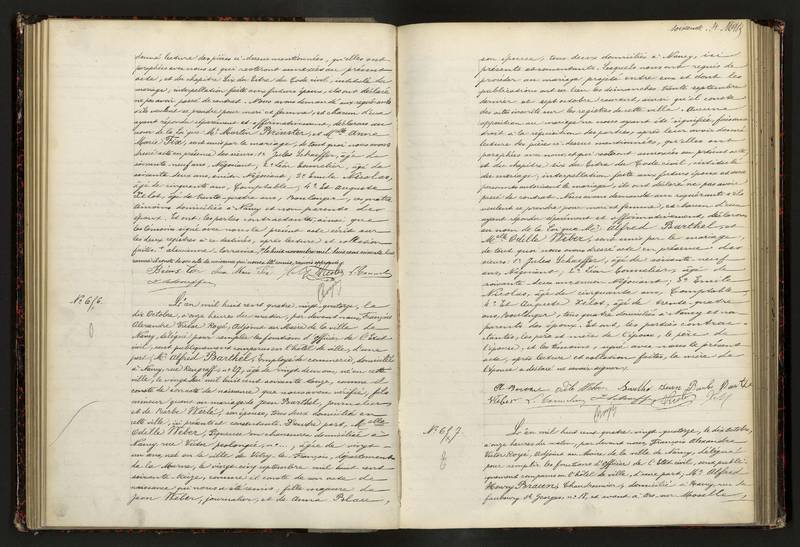 donné lecture des pièces ci-dessus mentionnées, qu'elles ont
paraphées avec nous et qui resteront annexées au présent
acte, et du chapitre six du titre du Code civil, intitulé du
mariage, interpellation faite aux futurs époux, ils ont déclaré
ne pas avoir passé de contrat. Nous avons demandé aux requérants
s'ils veulent se prendre pour mari et femme, et chacun d'eux
ayant répondu séparément et affirmativement, déclarons au
nom de la loi que Mr. Martin Brinster et Melle Anne
Marie Fix, sont unis par le mariage, de tout quoi nous avons
dressé acte en présence des sieurs: 1° Jules Schaeffer, âgé de
soixante neuf ans, Négociant; 2° Léon Connelier, âgé de
soixante deux ans, ancien Négociant; 3° Emile Nicolas,
âgé de cinquante ans, Comptable; 4° Et Auguste
Xélot, âgé de trente quatre ans, Boulanger, ces quatre
témoins domiciliés à Nancy et non parents des
époux. Et ont, les parties contractantes, ainsi que
les témoins signé avec nous le présent acte écrit sur
les deux registres à ce destinés, après lecture et collation
faites.
Nº 616.
L'an mil huit cent quatre vingt quatorze, le
dix Octobre, à onze heures du matin, par devant nous François
Alexandre Victor Royé, Adjoint au Maire de la ville de
Nancy, délégué pour remplir les fonctions d'Officier de l'Etat
civil, sont publiquement comparus en l'hôtel de ville, d'une
part, Mr. Alfred Barthel, Employé de commerce, domicilié
à Nancy, rue, nº 27, âgé de vingt deux ans, né en cette
ville, le vingt mai mil huit cent soixante douze, comme il
conste de son acte de naissance que nous avons vérifié, fils
mineur quant au mariage de Jean Barthel, journalier
et de Barbe Werlé, son épouse, tous deux domiciliés en
cette ville, ici présents et consentants. D'autre part, Melle
Odelle Weber, Piqueuse en chaussures, domiciliée à
Nancy, rue Victor prolongée, nº, âgée de vingt
un ans, née en la ville de Vitry-le-François, département
de la Marne, le vingt cinq septembre mil huit cent
soixante treize, comme il conste de son acte de
naissance qui nous a été remis, fille majeure de
Jean Weber, journalier, et de Anna Polair,
son épouse, tous deux domiciliés à Nancy, ici
présents et consentants. Lesquels nous ont requis de
procéder au mariage projeté entre eux et dont les
publications ont eu lieu les dimanches trente septembre
dernier et sept octobre courant, ainsi qu'il conste
des actes inscrits sur les registres de cette ville. Aucune
opposition au mariage ne nous ayant été signifiée, faisant
droit à la réquisition des parties, après leur avoir donné
lecture des pièces ci-dessus mentionnées, qu'elles ont
paraphées avec nous et qui resteront annexées au présent acte,
et du chapitre six du titre du Code civil, intitulé
du mariage, interpellation faite aux futurs époux et aux
personnes autorisant le mariage, ils ont déclaré ne pas avoir
passé de contrat. Nous avons demandé aux requérants s'ils
veulent se prendre pour mari et femme, et chacun d'eux
ayant répondu séparément et affirmativement, déclarons
au nom de la loi que Mr. Alfred Barthel, et
Melle Odelle Weber, sont unis par le mariage,
de tout quoi nous avons dressé acte en présence des
sieurs: 1° Jules Schaeffer, âgé de soixante neuf
ans, Négociant; 2° Léon Connelier, âgé de
soixante deux ans, ancien Négociant; 3° Emile
Nicolas, âgé de cinquante ans, Comptable;
4° Et Auguste Xélot, âgé de trente quatre
ans, Boulanger, tous quatre domiciliés à Nancy et non
parents des époux. Et ont, les parties contrac-
tantes, les père et mère de l'époux, le père de
l'épouse, et les témoins, signé avec nous le présent
acte, après lecture et collation faites, la mère de
l'épouse a déclaré ne savoir signer.
Nº 617.
L'an mil huit cent quatre vingt quatorze, le dix Octobre,
à onze heures du matin, par devant nous, François Alexandre
Victor Royé, Adjoint au Maire de la ville de Nancy, délégué
pour remplir les fonctions d'Officier de l'Etat civil, sont publi-
quement comparus en l'hôtel de ville, d'une part, Mr. Alfred
Henry Braun, Chaudronnier, domicilié à Nancy, rue du
faubourg St Georges, nº 18, et avant à Ars-sur-Moselle,